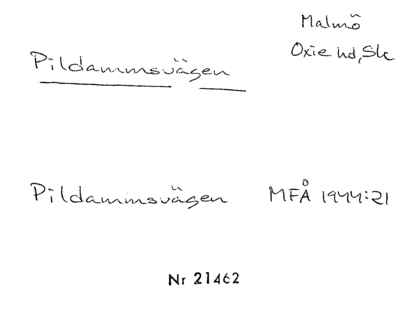 Malmö
Oxie hd, Sk
Pildammsvägen
Pildammsvägen MFÅ 1944:21
Nr 21462